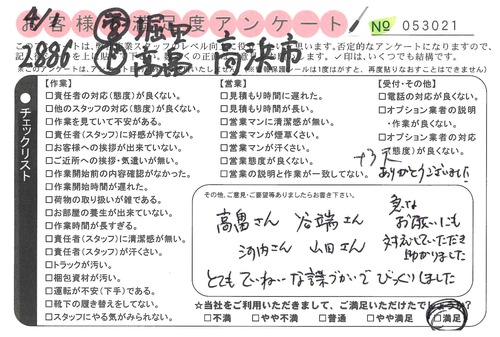 お客様満足度アンケート
4/1
2886
高畠
高浜市
No 053021
チェックリスト
【作業】
□責任者の対応(態度)が良くない。
□他のスタッフの対応(態度)が良くない。
□作業を見ていて不安がある。
□責任者(スタッフ)に好感が持てない。
□お客様への挨拶が出来ていない。
□ご近所への挨拶・気遣いが無い。
□作業開始前の内容確認がなかった。
□作業開始時間が遅れた。
□荷物の取り扱いが雑である。
□お部屋の養生が出来ていない。
□作業時間が長すぎる。
□責任者(スタッフ)に清潔感が無い。
□責任者(スタッフ)が汗くさい。
□トラックが汚い。
□梱包資材が汚い。
□運転が不安(下手)である。
□靴下の履き替えをしてない。
□スタッフにやる気がみられない。
【営業】
□見積もり時間に遅れた。
□見積もり時間が長い。
□営業マンに清潔感が無い。
□営業マンが煙草くさい。
□営業マンが汗くさい。
□営業態度が良くない。
□営業の説明と作業が一致してない。
【受付・その他】
□電話の対応が良くない。
□オプション業者の説明
・作業が良くない。
□オプション業者の対応
(態度)が良くない。
ありがとうございました
その他、ご意見・ご要望等ありましたらお書き下さい。
高畠さん 谷端さん
河内さん 山田さん
急な
お願いにも
対応していただき
助かりました
とてもていねいな言葉づかいでびっくりしました
☆当社をご利用いただきまして、ご満足いただけたでしょうか?
□不満 □やや不満 □普通 □やや満足 □満足